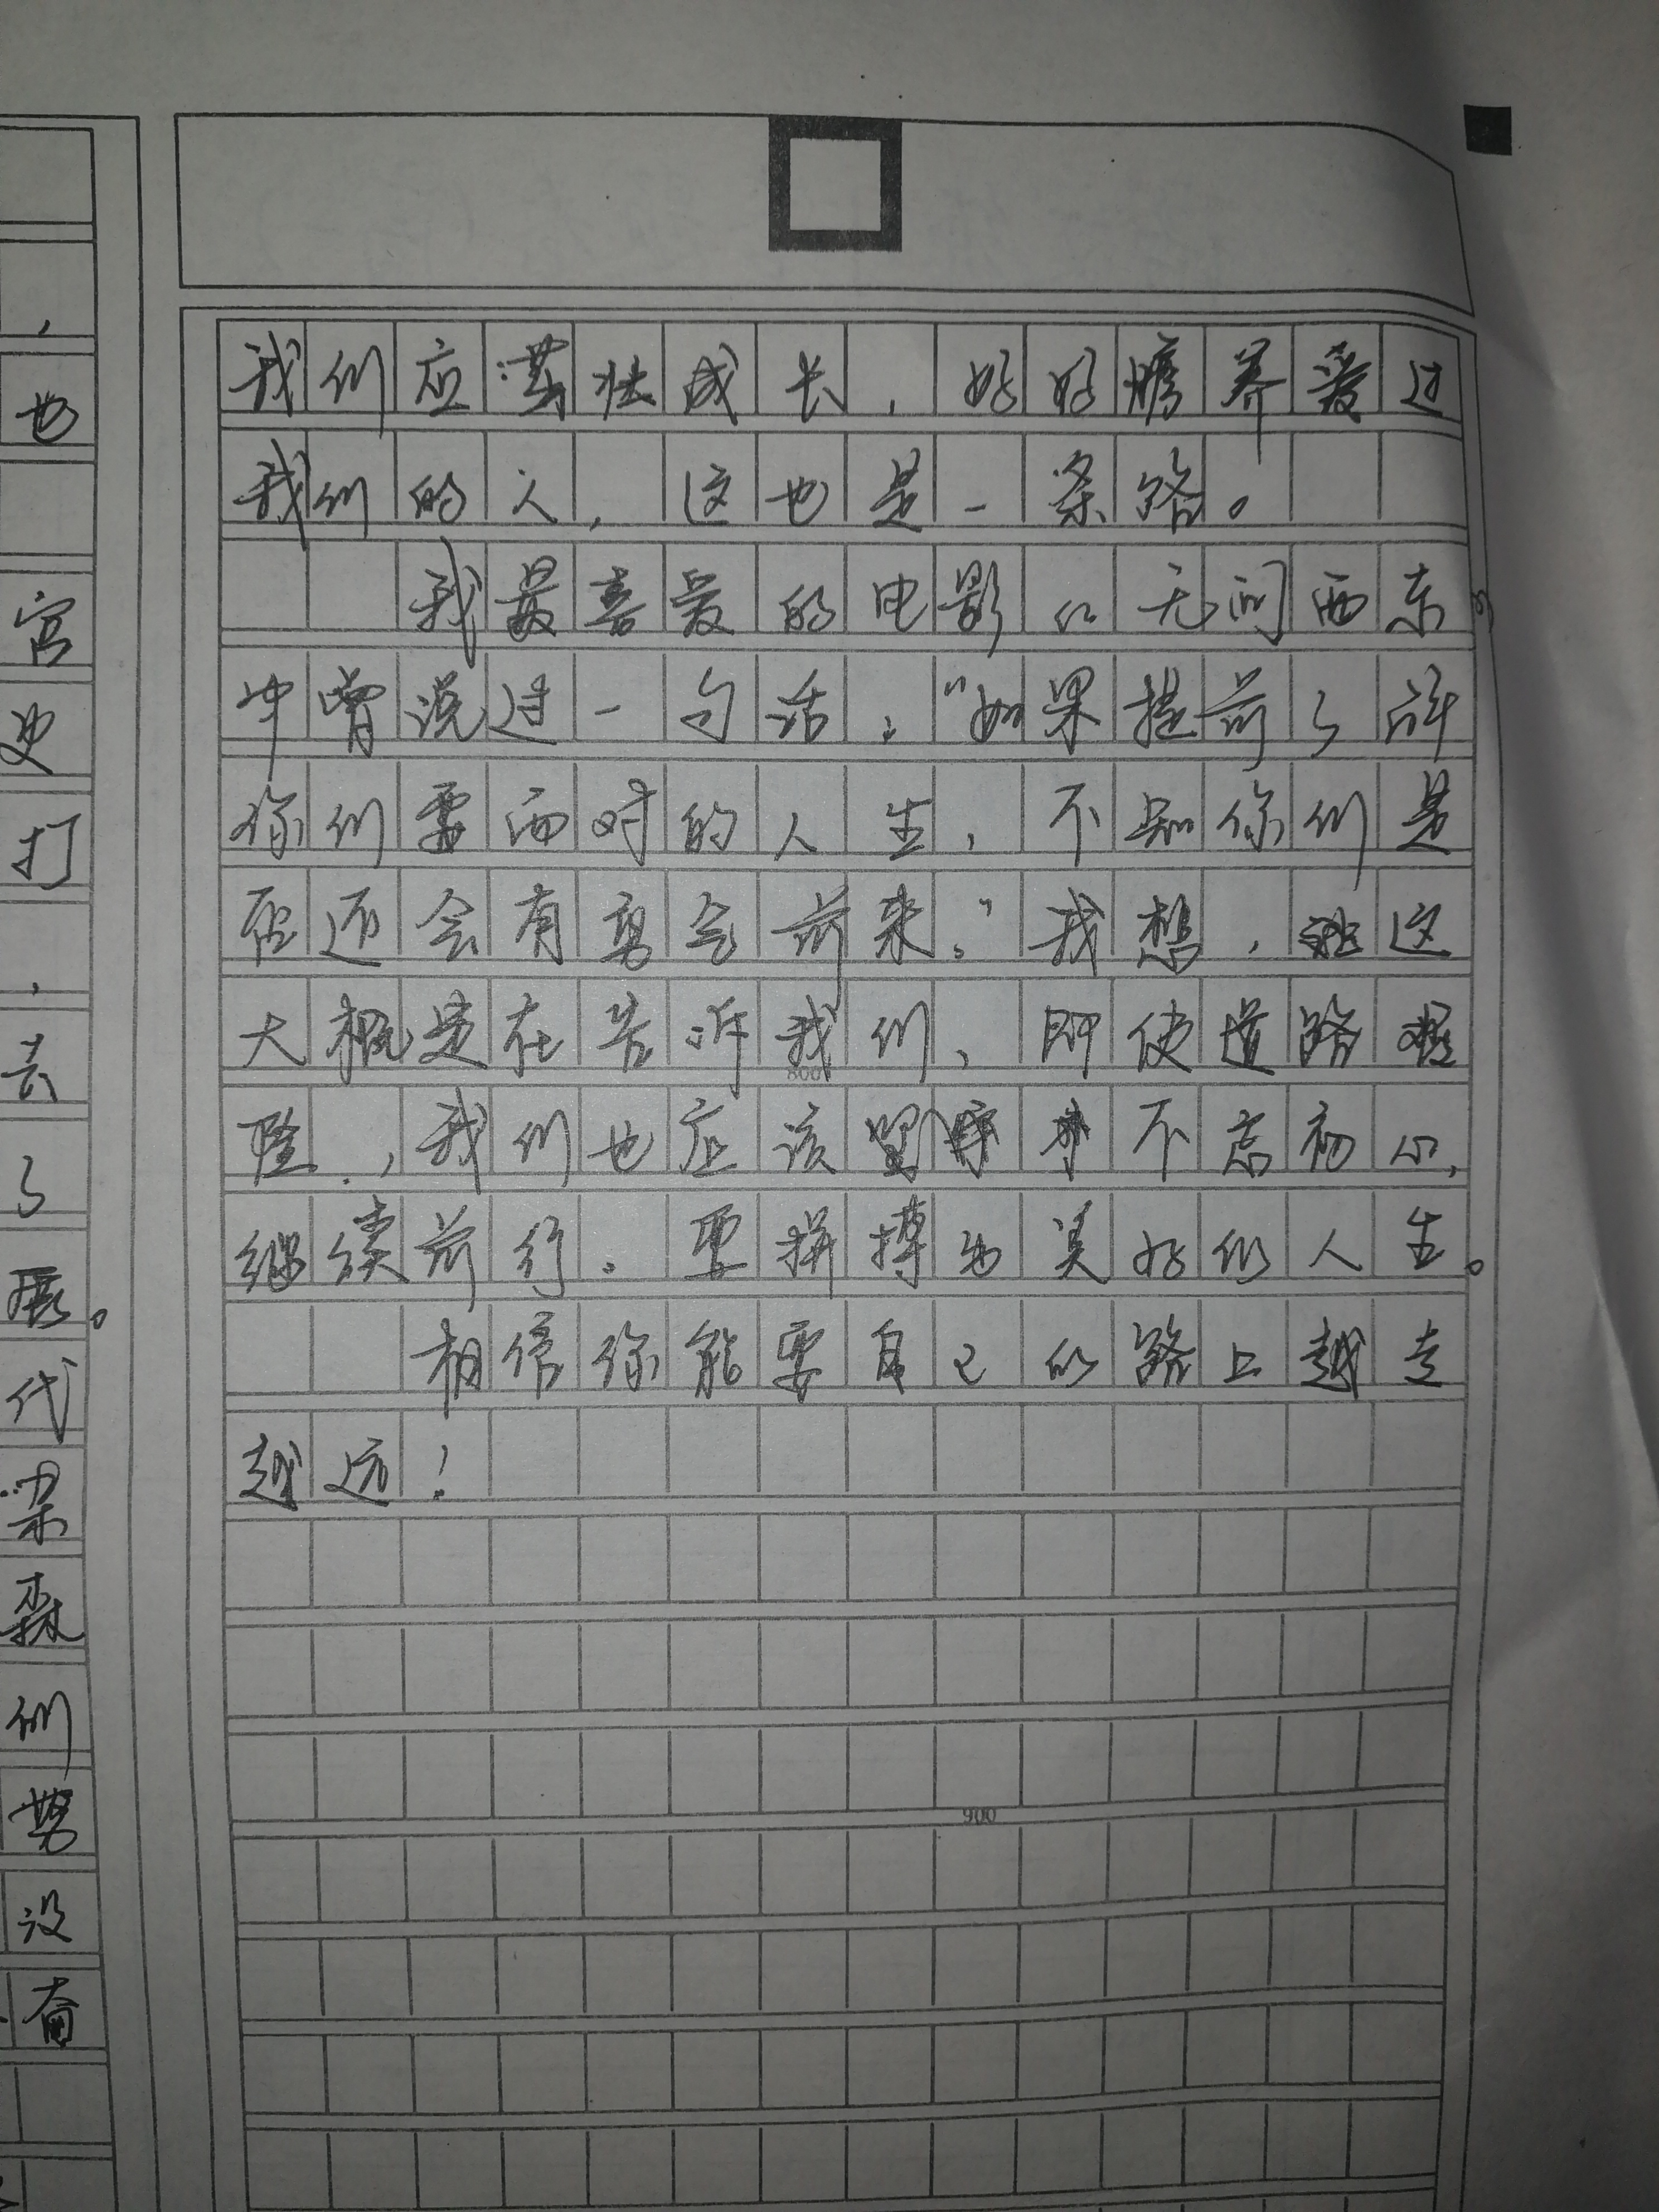 我们应茁壮成长，好好赡养爱过
我们的人，这也是一条路。
我最喜爱的电影《无问西东》
中曾说过一句话：“如果提前了解
你们要面对的人生，不知你们是
否还会有勇气前来。”我想，这
大概是在告诉我们，即使道路艰
险，我们也应该不忘初心，
继续前行。要拼搏出美好的人生。
相信你能要自己的路上越走
越远！
800
900
，
也
官
史
打
，
去
了
展。
代
梁
森
们
努
设
奋